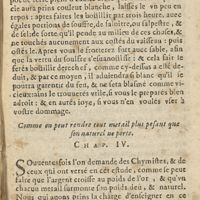 cie aura prins couleur blanche, laisses le vn peu en
repos: apres faites les bouillir par trois heure, auec
égales portions de souffre, de sainture, ou salpestre, &
de sel: de sorte qu'il pende au milieu de ces choses, &
ne touches aucunement aux costés du vaisseau: puis
ostés le. Apres vous le frotterez fort auec sable, afin
que la vertu du soulfre s'esuanouisse: & cela fait le
ferés bouillir derechef, comme cy-dessus a esté de-
duit, & par ce moyen, il aduiendra si blanc qu'il se
pourra garentir du feu, & ne sera blasmé comme vi-
cieux: encore le trouuerés vtile, si vous le preparés bien
adroit: & en autés ioye, si vous n'en voulés vser à
vostre dommage.
Comme on peut rendre tout metail plus pesant que
son naturel ne porte.
CHAP. IV.
SOuuentesfois l'on demande des Chymistes, & de
ceux qui ont versé en cest estude, comme se peut
faire que l'argent croisse au poids de l'or, & qu'vn
chacun metail surmonte son poids deu, & naturel.
Nous qui auons prins la charge d'enseigner en ce